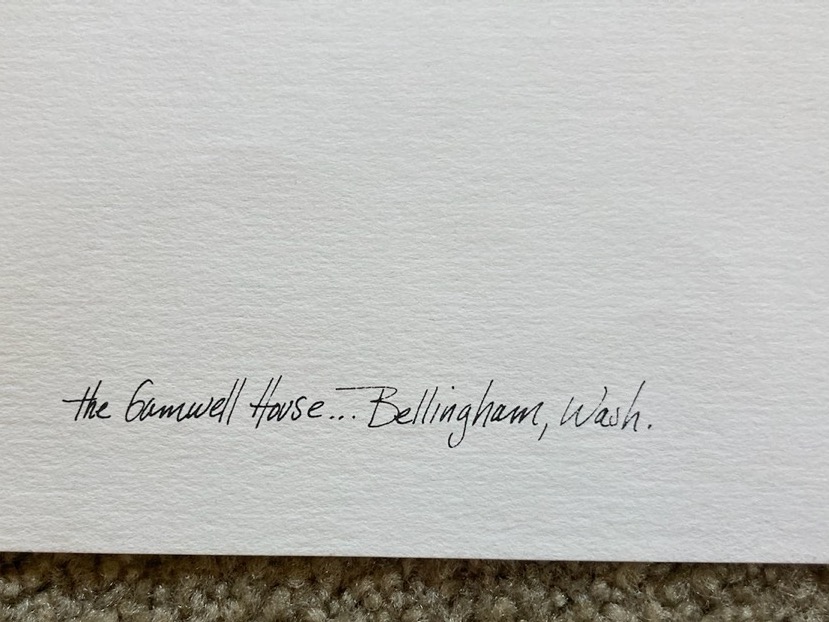 the Gamwell House... Bellingham, Wash.